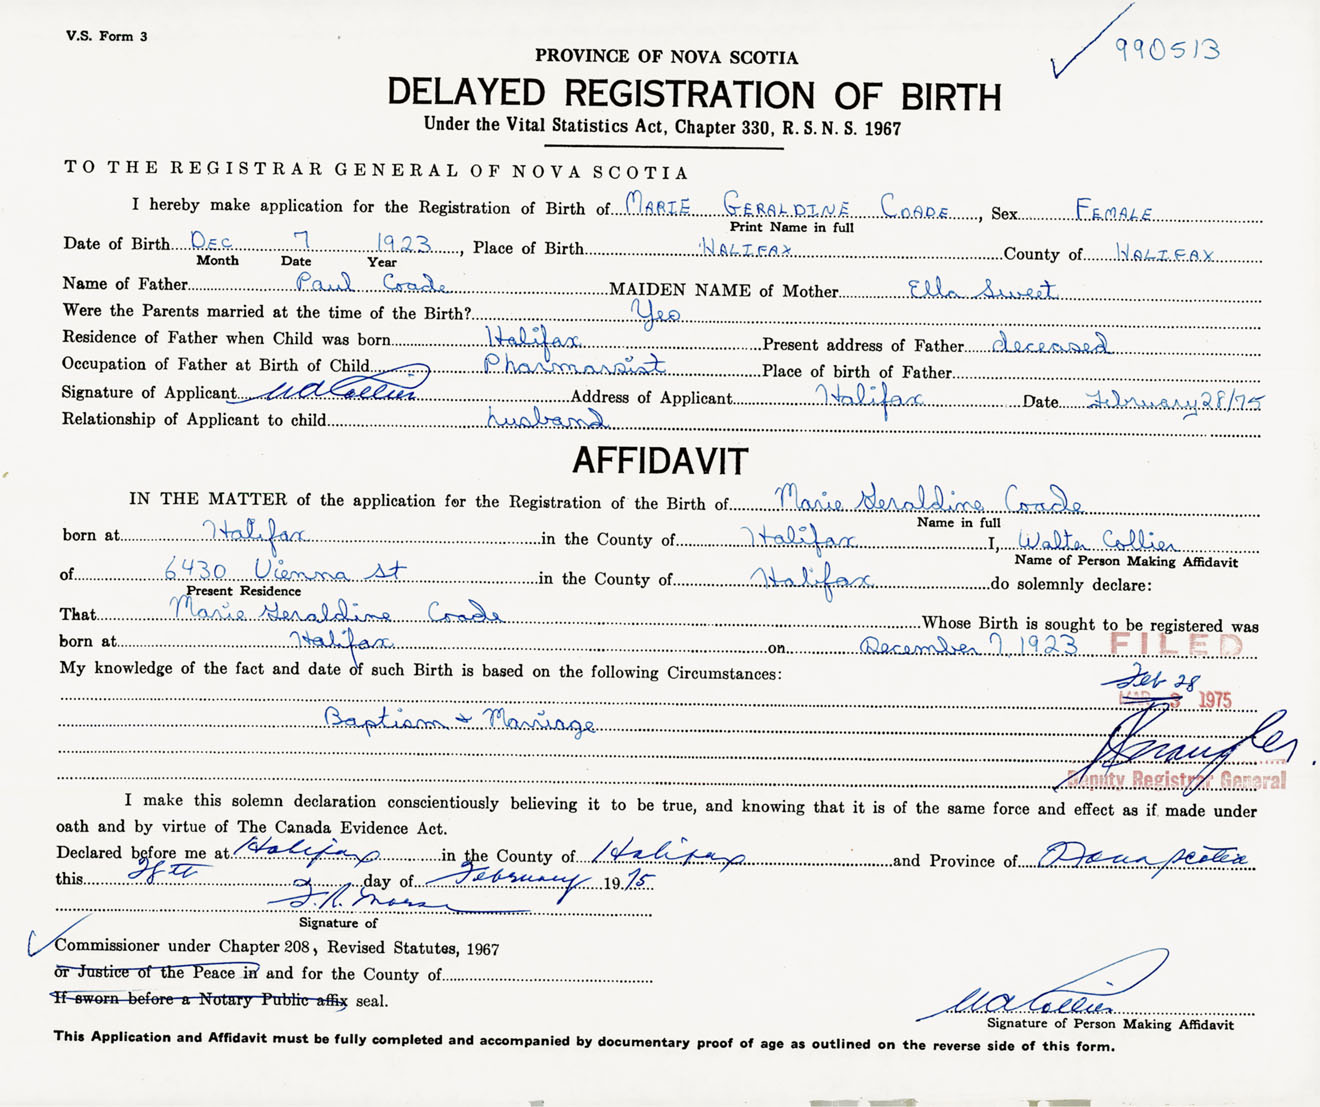 V.S. Form 3
990513
PROVINCE OF NOVA SCOTIA
DELAYED REGISTRATION OF BIRTH
Under the Vital Statistics Act, Chapter 330, R. S. N. S. 1967
TO THE REGISTRAR GENERAL OF NOVA SCOTIA
I hereby make application for the Registration of Birth of MARIE GERALDINE COADE, Sex FEMALE
Print Name in full
Date of Birth DEC 7 1923, Place of Birth HALIFAX County of HALIFAX
Month Date Year
Name of Father Paul Coade MAIDEN NAME of Mother Ella Sweet
Were the Parents married at the time of the Birth? Yes
Residence of Father when Child was born Halifax Present address of Father deceased
Occupation of Father at Birth of Child Pharmasist Place of birth of Father
Signature of Applicant WA Collier Address of Applicant Halifax Date February 28/75
Relationship of Applicant to child husband
AFFIDAVIT
IN THE MATTER of the application for the Registration of the Birth of Marie Geraldine Coade
Name in full
born at Halifax in the County of Halifax I, Walter Collier
Name of Person Making Affidavit
of 6430 Vienna St in the County of Halifax do solemnly declare:
Present Residence
That Marie Geraldine Coade Whose Birth is sought to be registered was
born at Halifax on December 7, 1923 FILED
My knowledge of the fact and date of such Birth is based on the following Circumstances:
Feb 28
MAR 3 1975
Baptism + Marriage
Deputy Registrar General
I make this solemn declaration conscientiously believing it to be true, and knowing that it is of the same force and effect as if made under
oath and by virtue of The Canada Evidence Act.
Declared before me at Halifax in the County of Halifax and Province of Nova Scotia
this 28th day of February 1975
Signature of
Commissioner under Chapter 208, Revised Statutes, 1967
or Justice of the Peace in and for the County of
If sworn before a Notary Public affix seal.
WA Collier
Signature of Person Making Affidavit
This Application and Affidavit must be fully completed and accompanied by documentary proof of age as outlined on the reverse side of this form.